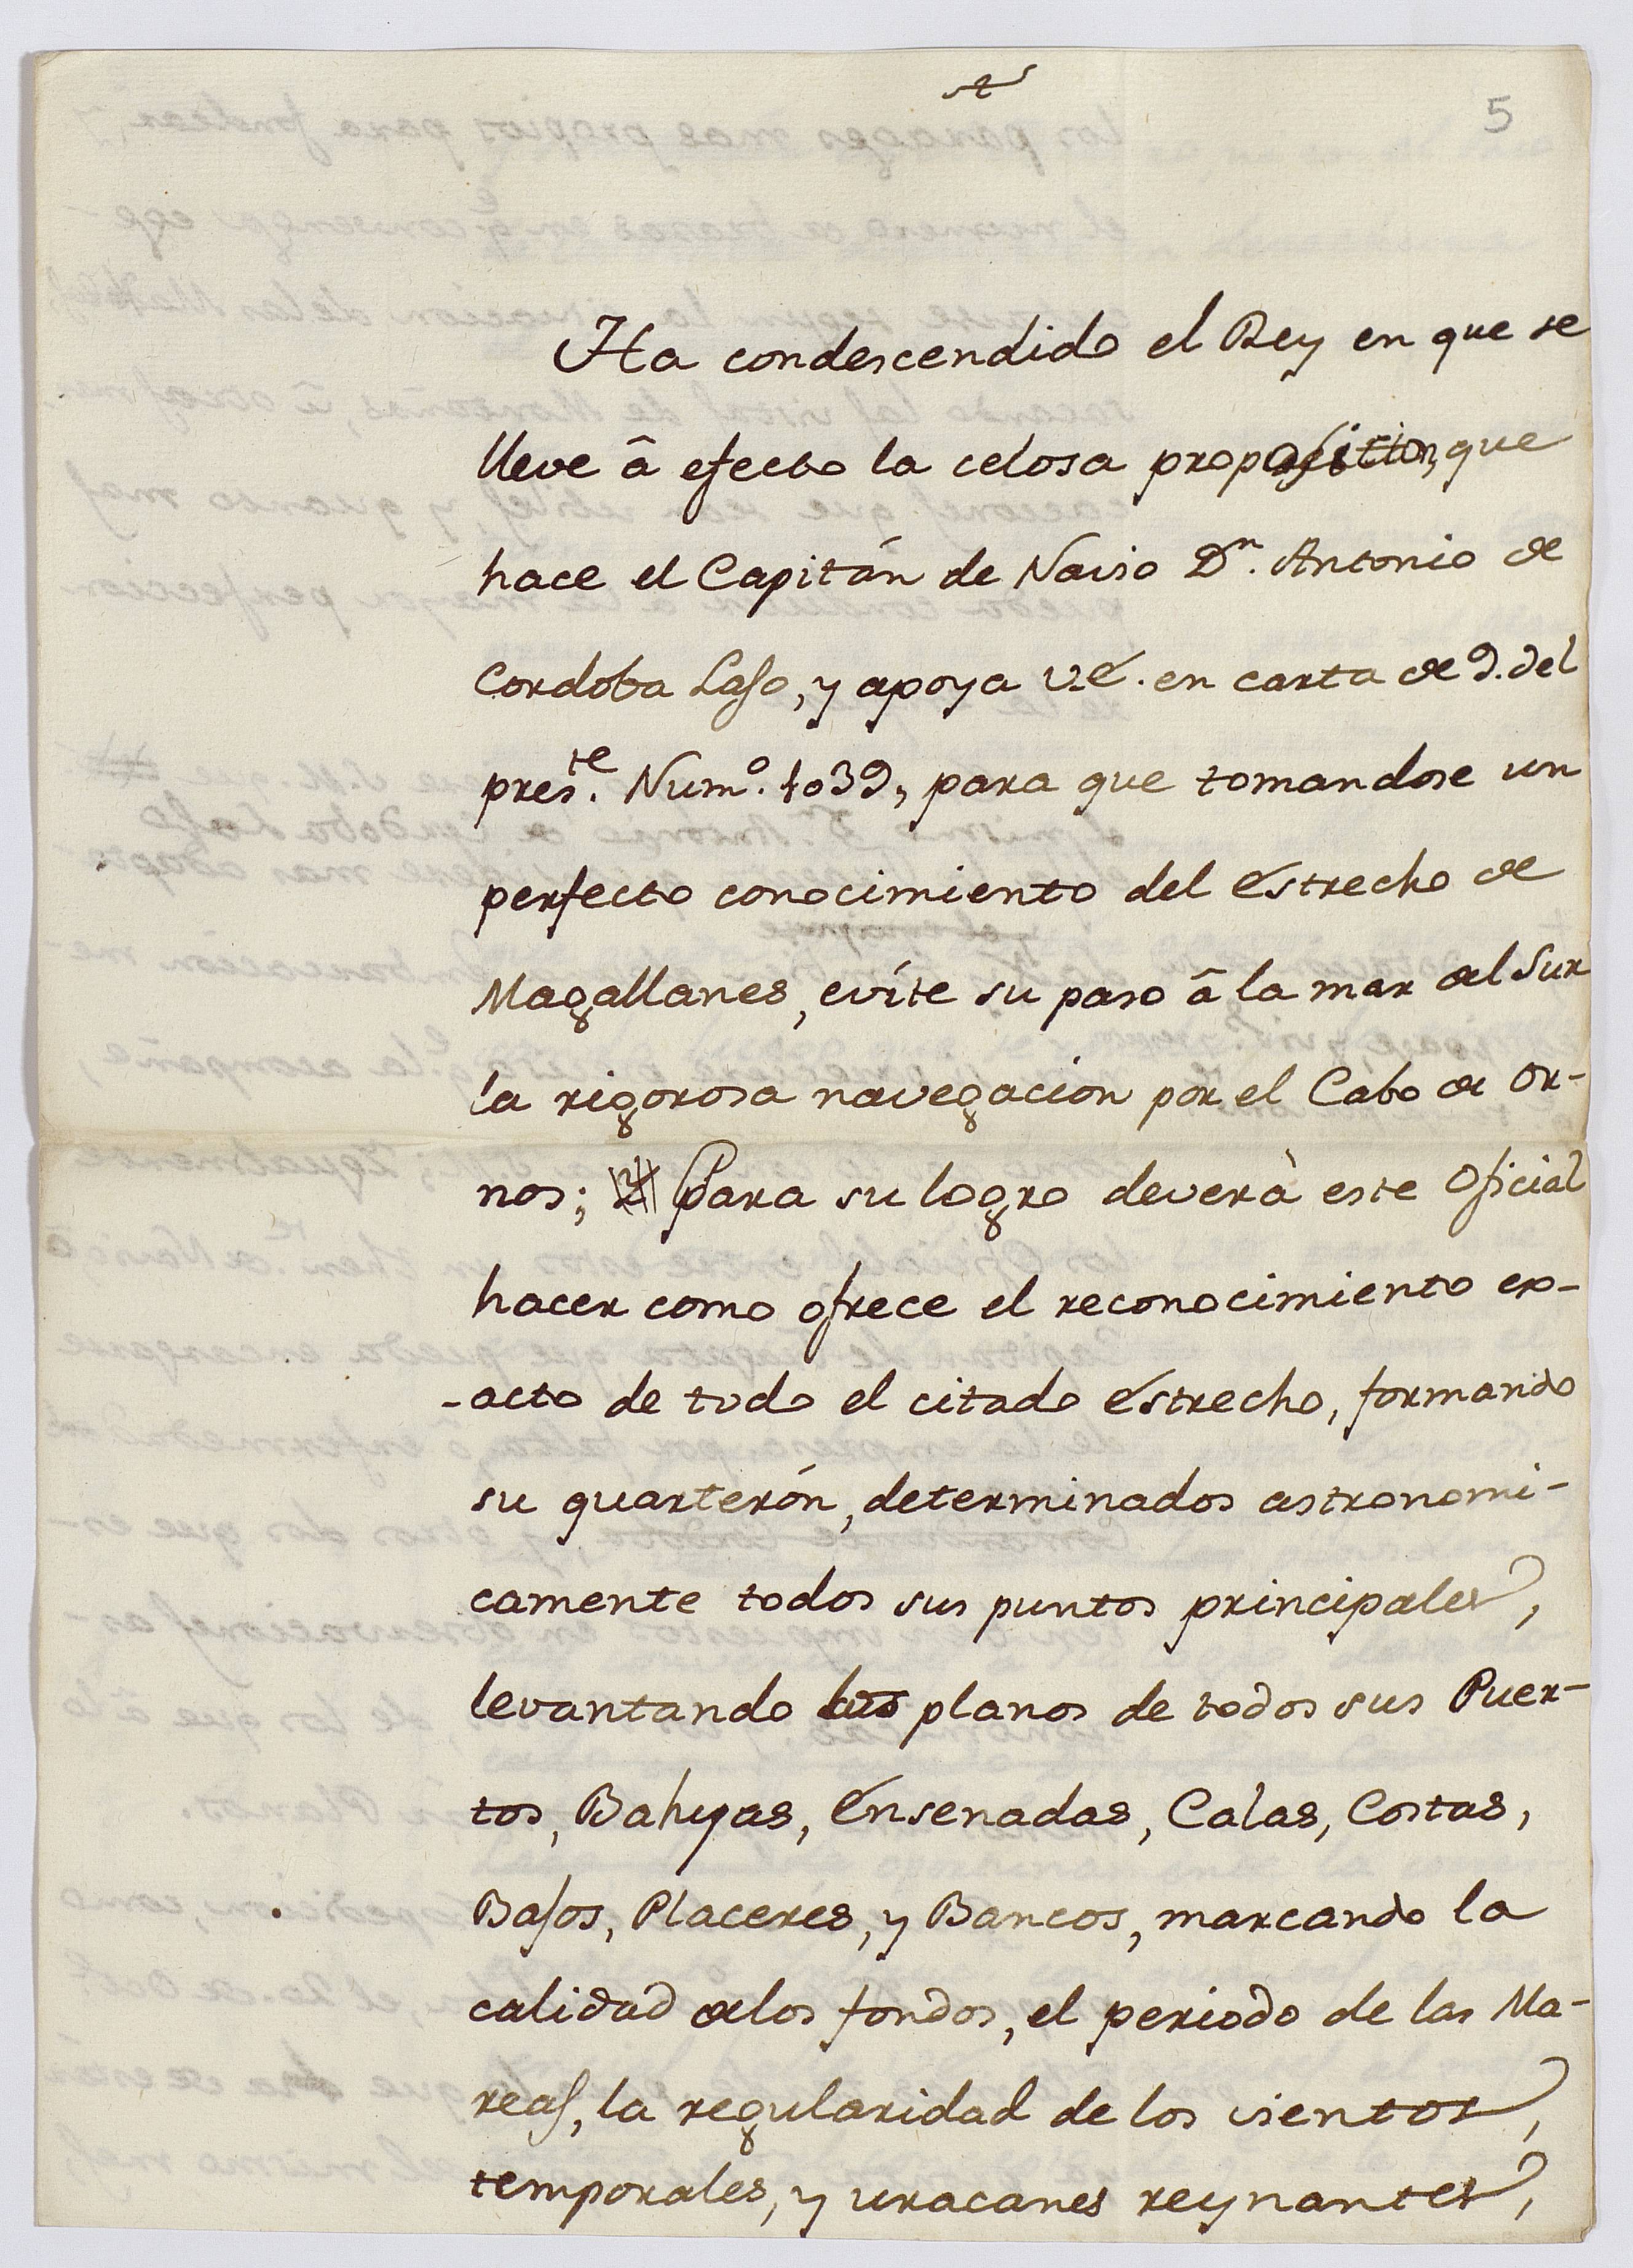 5
Ha condescendido el Rey en que se
lleve â efecto la celosa proposition, que
hace el Capitán de Navio Dn. Antonio de
Cordoba Laso, y apoya V.E. en carta de 9. del
preste. Numo. 1039, para que tomandose un
perfecto conocimiento del Estrecho de
Magallanes, evíte su paso â la mar del Sur
la rigorosa navegacion por el Cabo de Or-
nos; Para su logro deverà este Oficial
hacer como ofrece el reconocimiento ex-
-acto de todo el citado Estrecho, formando
su quarterón, determinados astronomi-
camente todos sus puntos principales,
levantando los planos de todos sus Puer-
tos, Bahyas, Ensenadas, Calas, Costas,
Bajos, Placeres, y Bancos, marcando la
calidad de los fondos, el periodo de las Ma-
reas, la regularidad de los vientos,
temporales, y uracanes reynantes,